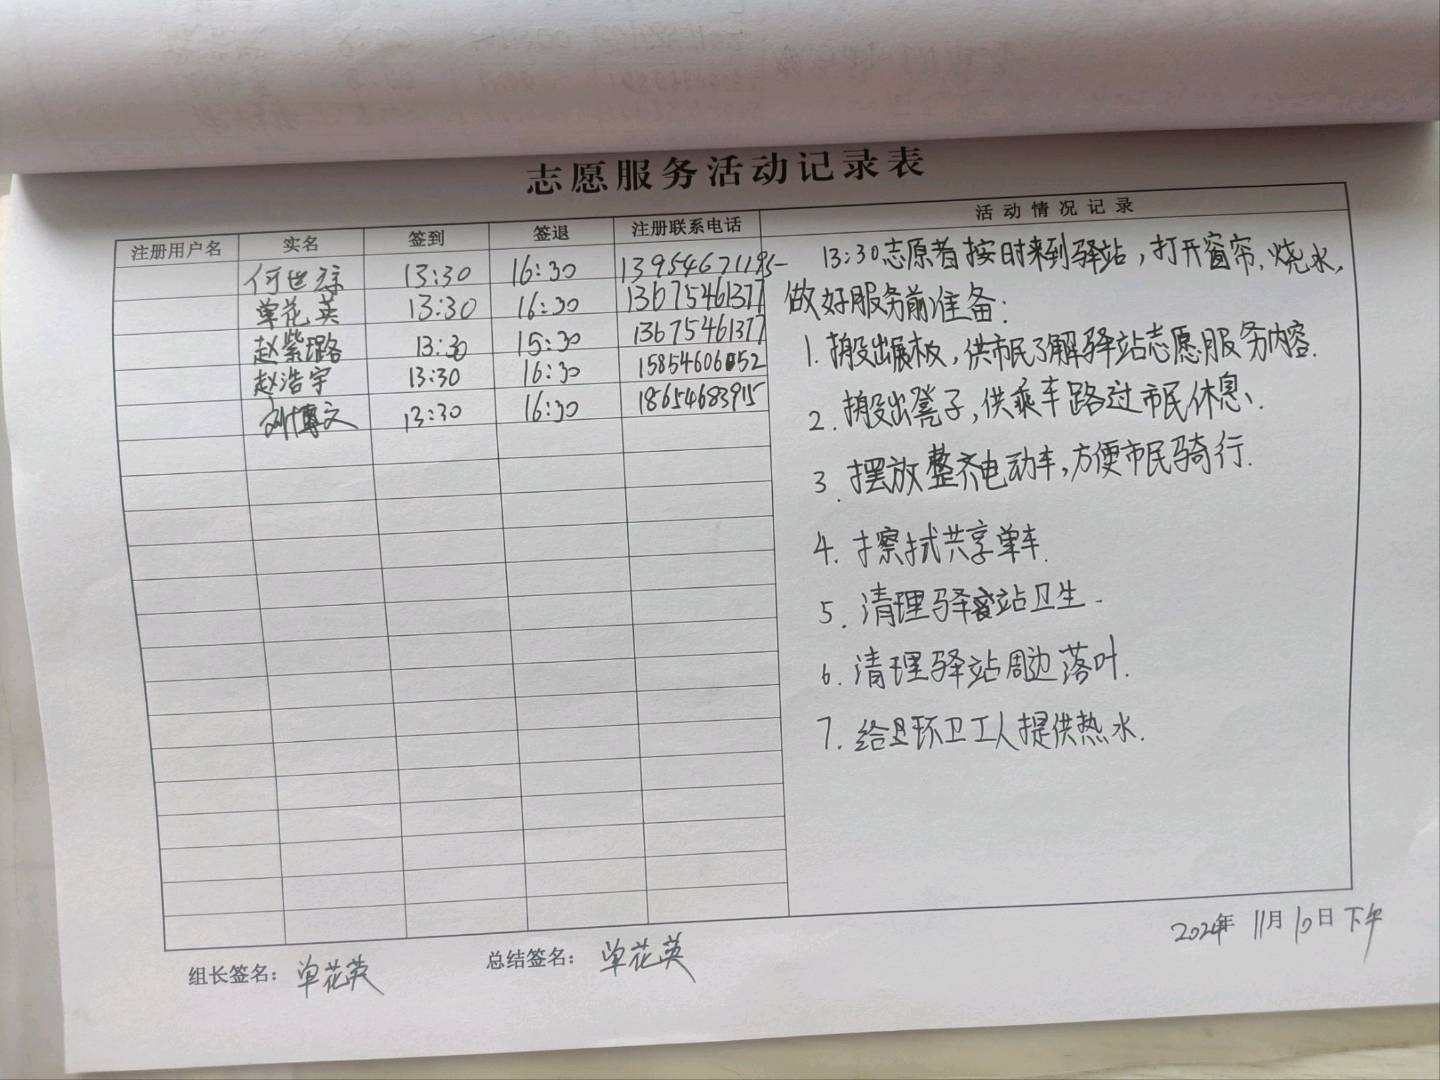 志愿服务活动记录表
注册用户名 实名 签到 签退 注册联系电话 活动情况记录
何世琮 13:30 16:30 13954671195
单花英 13:30 16:30 13675461377
赵紫璐 13:30 15:30 13675461377
赵浩宇 13:30 16:30 15854606052
刘博文 13:30 16:30 18654683915
13:30志愿者按时来到驿站,打开窗帘、烧水,
做好服务前准备:
1. 搬出展板,供市民了解驿站志愿服务内容.
2. 搬出凳子,供乘车路过市民休息、.
3. 摆放整齐电动车,方便市民骑行.
4. 擦拭共享单车.
5. 清理驿站卫生.
6. 清理驿站周边落叶.
7. 给环卫工人提供热水.
组长签名: 单花英 总结签名: 单花英 2024年 11月10日下午